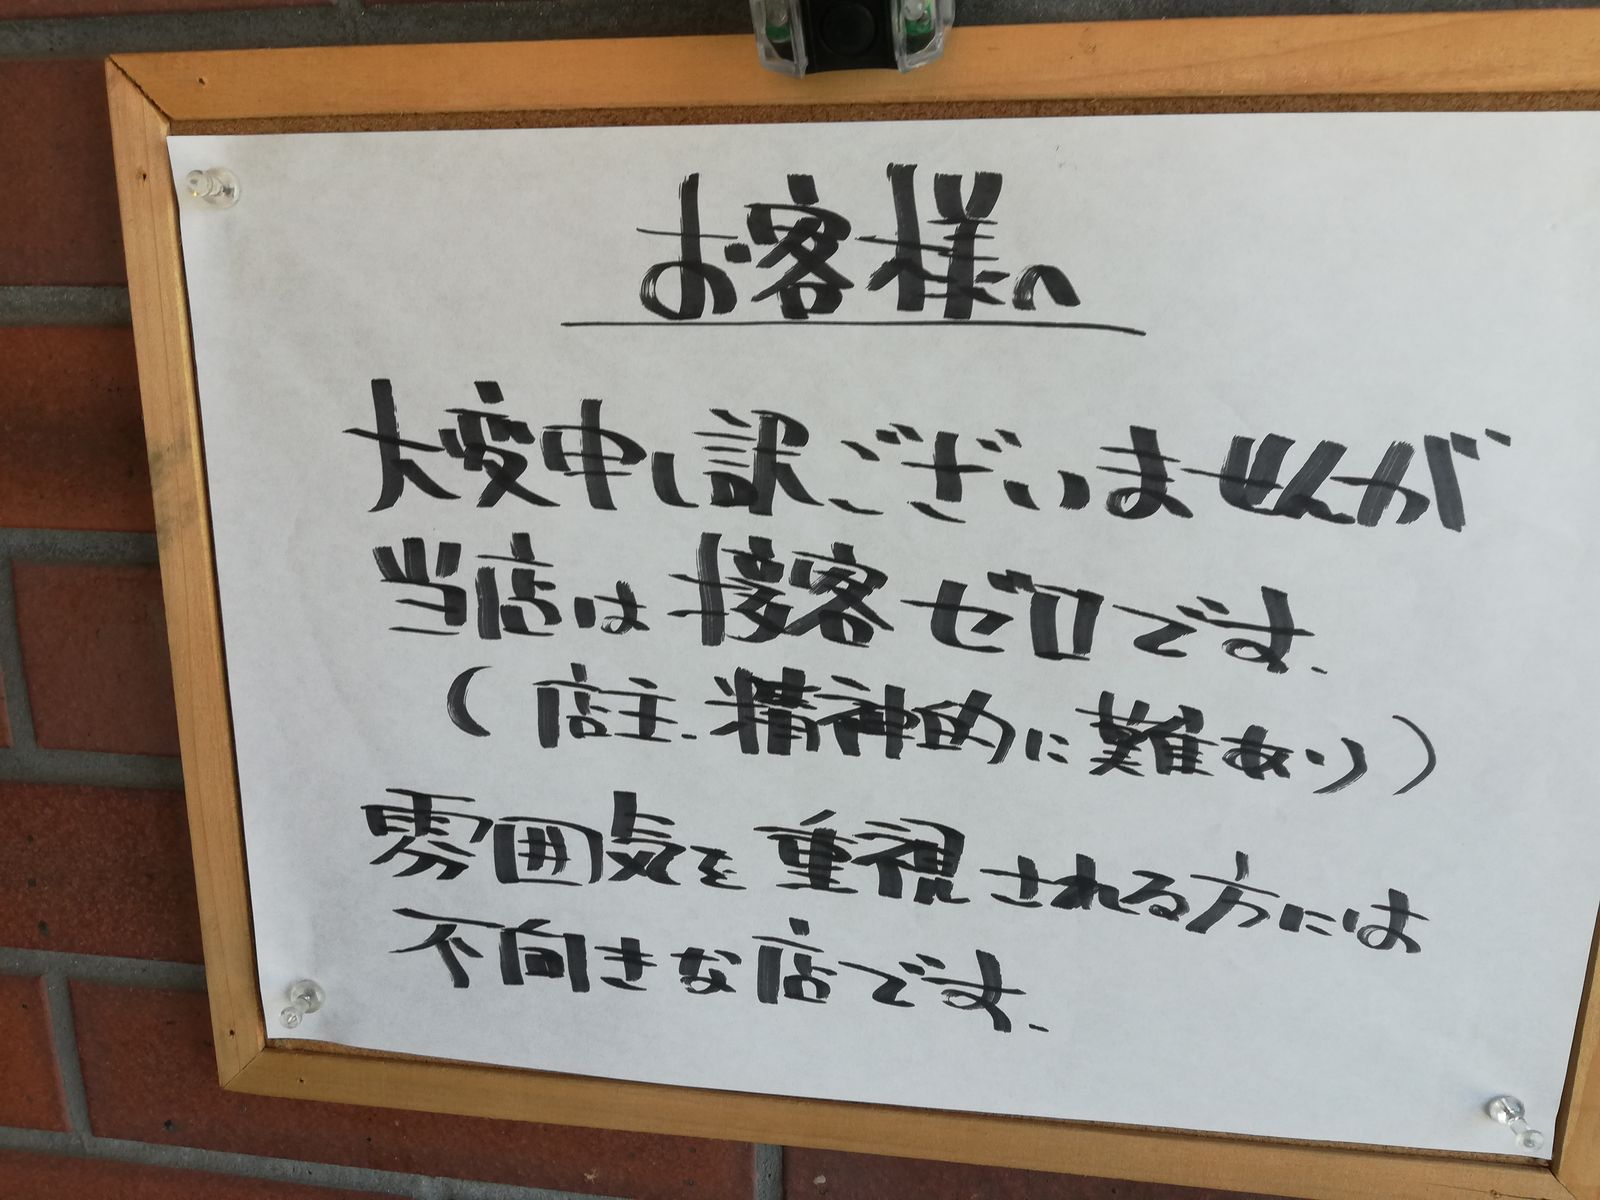 お客様へ
大変申し訳ございませんが
当店は接客ゼロです.
(店主.精神的に難あり)
雰囲気を重視される方には
不向きな店です.